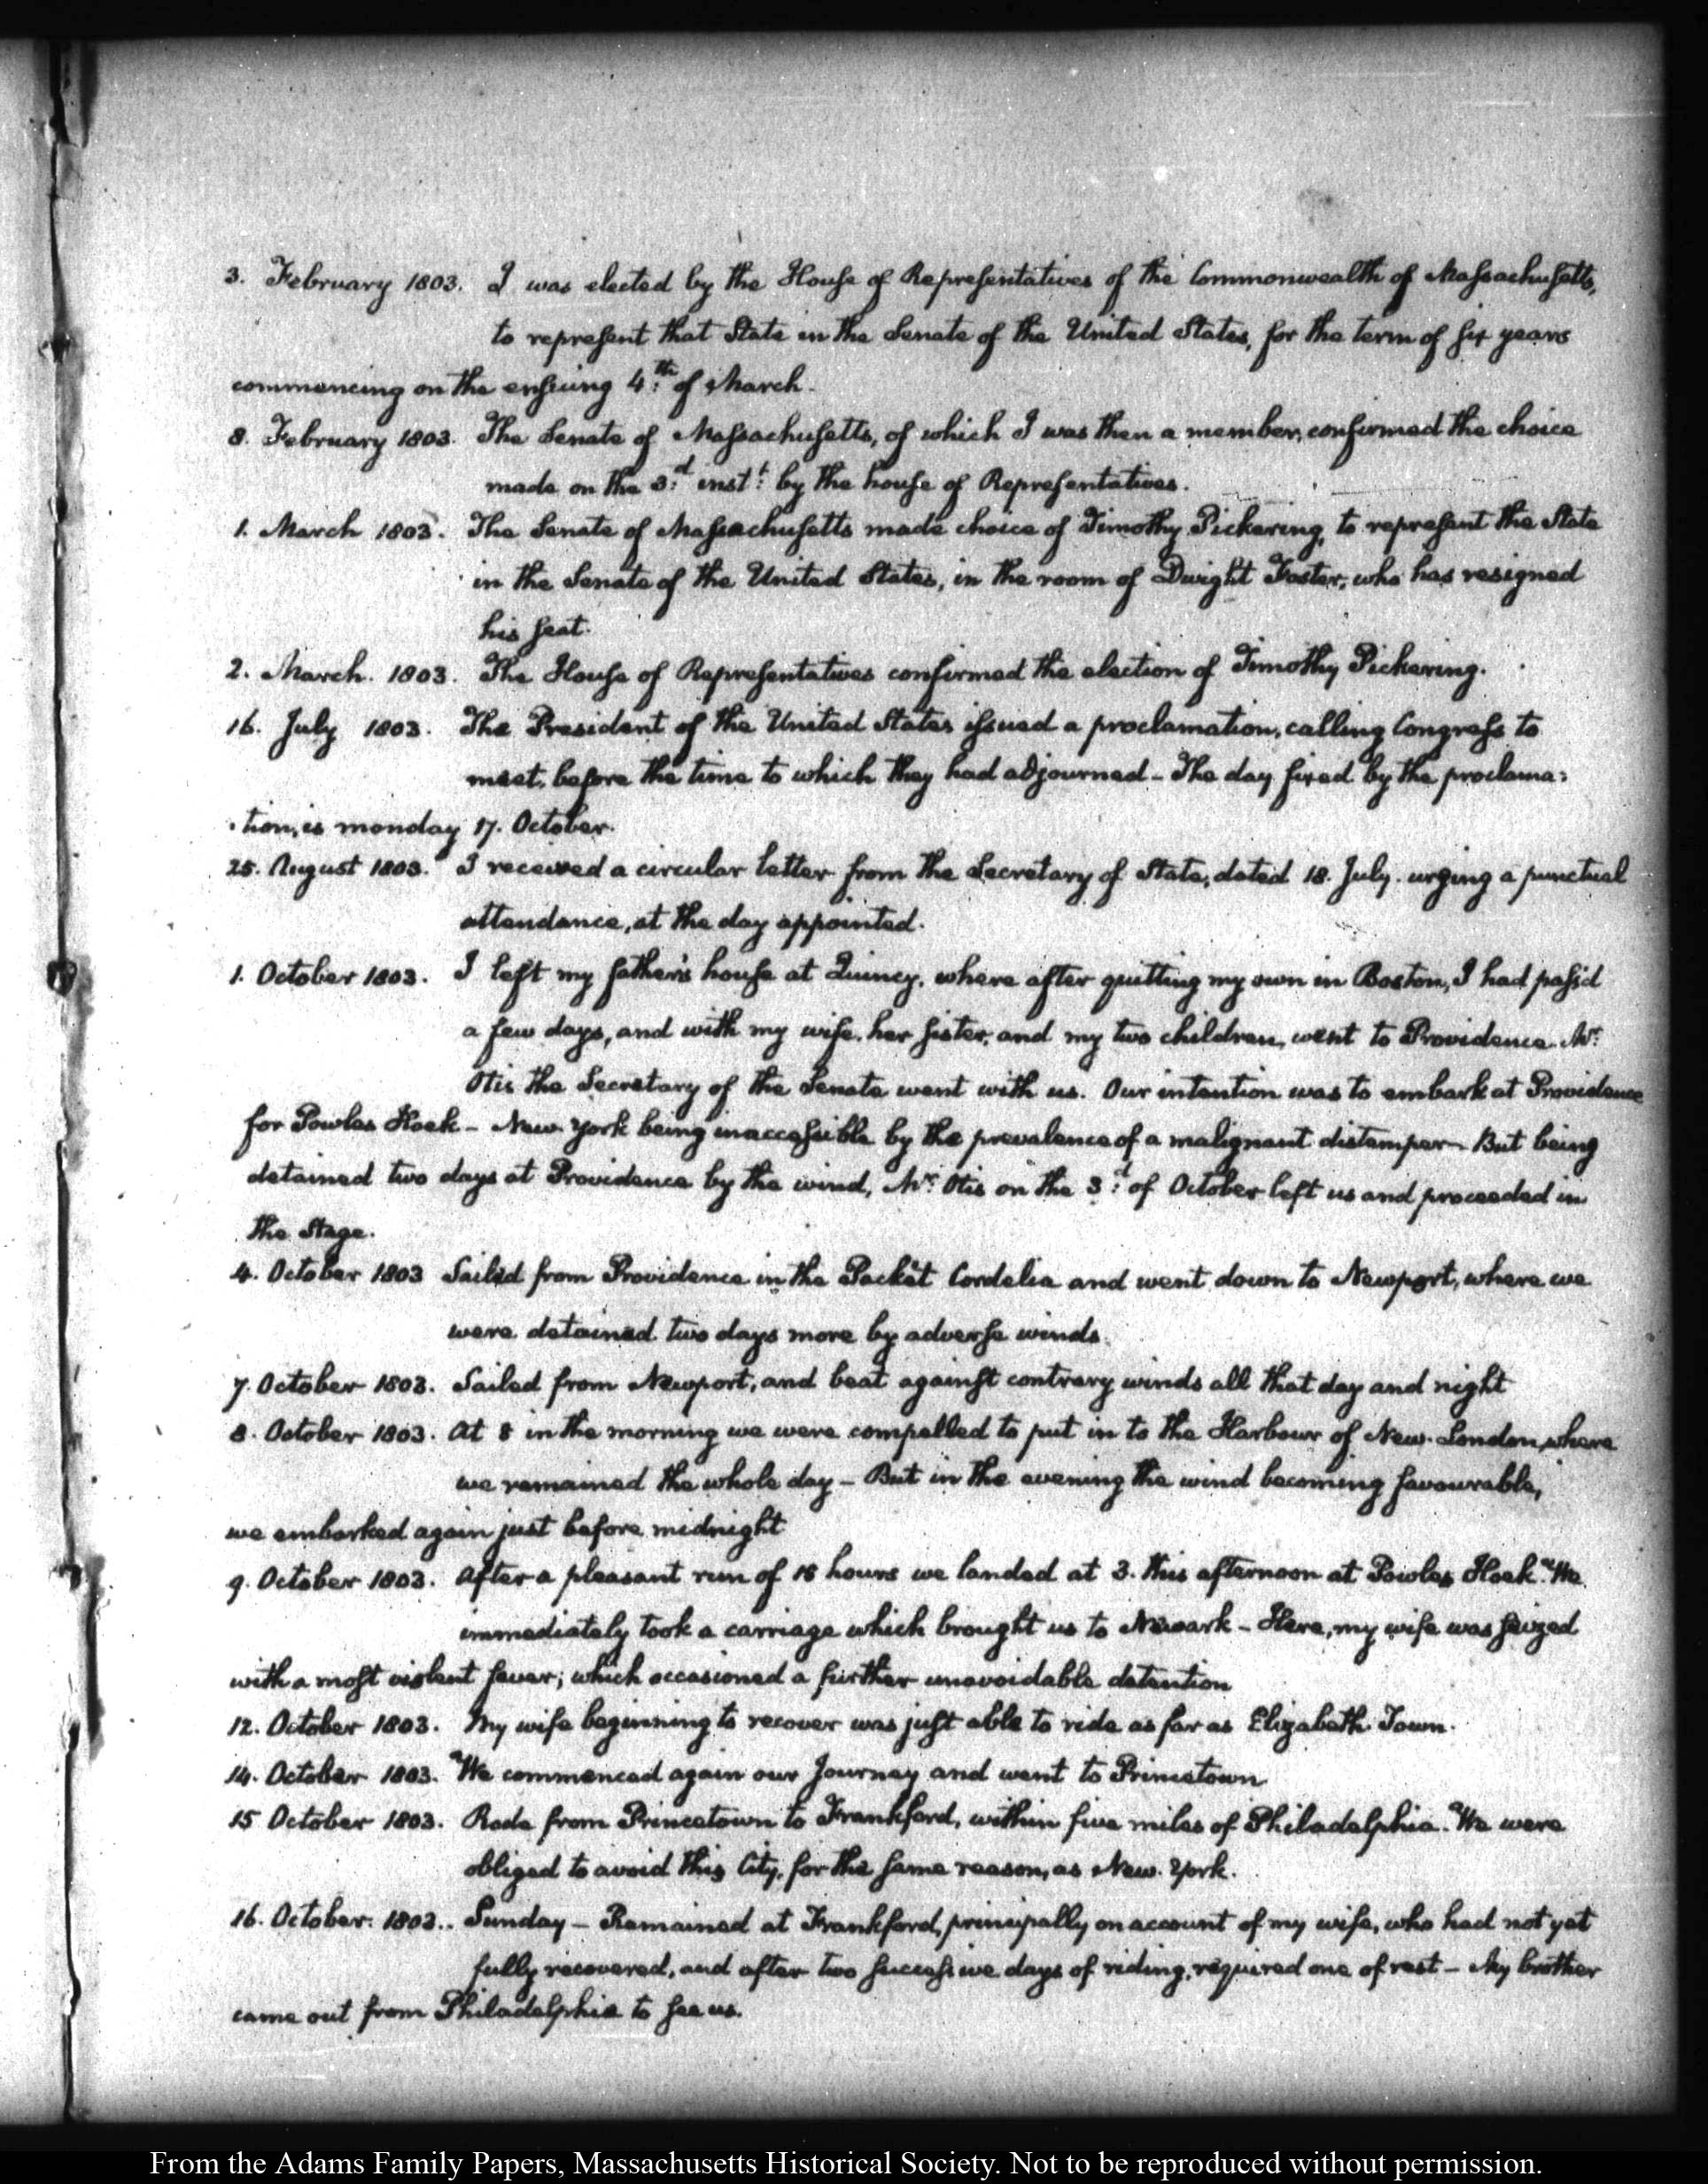 3. February 1803. I was elected by the House of Representatives of the Commonwealth of Massachusetts,
to represent that State in the Senate of the United States, for the term of six years
commencing on the ensuing 4.th of March.
8. February 1803. The Senate of Massachusetts, of which I was then a member, confirmed the choice
made on the 3.d inst.t by the house of Representatives.
1. March 1803. The Senate of Massachusetts made choice of Timothy Pickering, to represent the State
in the Senate of the United States, in the room of Dwight Foster, who has resigned
his seat.
2. March. 1803. The House of Representatives confirmed the election of Timothy Pickering.
16. July 1803. The President of the United States issued a proclamation, calling Congress to
meet, before the time to which they had adjourned - The day fixed by the proclama:
:tion, is monday 17. October.
25. August 1803. I received a circular letter from the Secretary of State, dated 18. July. urging a punctual
attendance, at the day appointed.
1. October 1803. I left my father's house at Quincy, where after quitting my own in Boston, I had pass'd
a few days, and with my wife, her sister, and my two children, went to Providence. Mr:
Otis the Secretary of the Senate went with us. Our intention was to embark at Providence
for Powles Hook - New York being inaccessible by the prevalence of a malignant distemper - But being
detained two days at Providence by the wind, Mr: Otis on the 3.d of October left us and proceeded in
the Stage.
4. October 1803 Sailed from Providence in the Packet Cordelia and went down to Newport, where we
were detained two days more by adverse winds.
7. October 1803. Sailed from Newport, and beat against contrary winds all that day and night
8. October 1803. At 8 in the morning we were compelled to put in to the Harbour of New-London, where
we remained the whole day - But in the evening the wind becoming favourable,
we embarked again just before midnight
9. October 1803. After a pleasant run of 16 hours we landed at 3. this afternoon at Powles Hook. We
immediately took a carriage which brought us to Newark - Here, my wife was seized
with a most violent fever; which occasioned a further unavoidable detention
12. October 1803. My wife beginning to recover was just able to ride as far as Elizabeth-Town.
14. October 1803. We commenced again our Journey and went to Princetown
15 October 1803. Rode from Princetown to Frankford, within five miles of Philadelphia. We were
obliged to avoid this City, for the same reason, as New-York.
16. October. 1803. Sunday - Remained at Frankford, principally on account of my wife, who had not yet
fully recovered, and after two successive days of riding, required one of rest - My brother
came out from Philadelphia to see us.
From the Adams Family Papers, Massachusetts Historical Society. Not to be reproduced without permission.